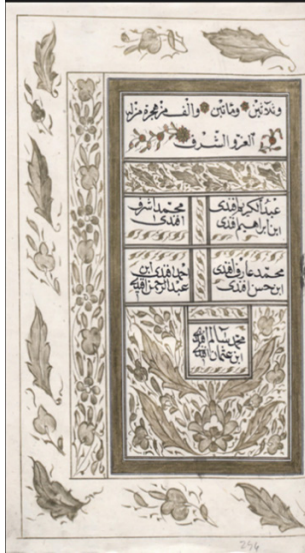 وثلاثين ومائتين والف من هجرة من له
العز والشرف
عبد الكريم افندى
ابن ابراهيم افندى
محمد اشرف
افندى
محمد عارف افندى
ابن حسن افندى
احمد افندى ابن
عبد الرحمن افندى
محمد سالم افندى
ابن عثمان افندى
256